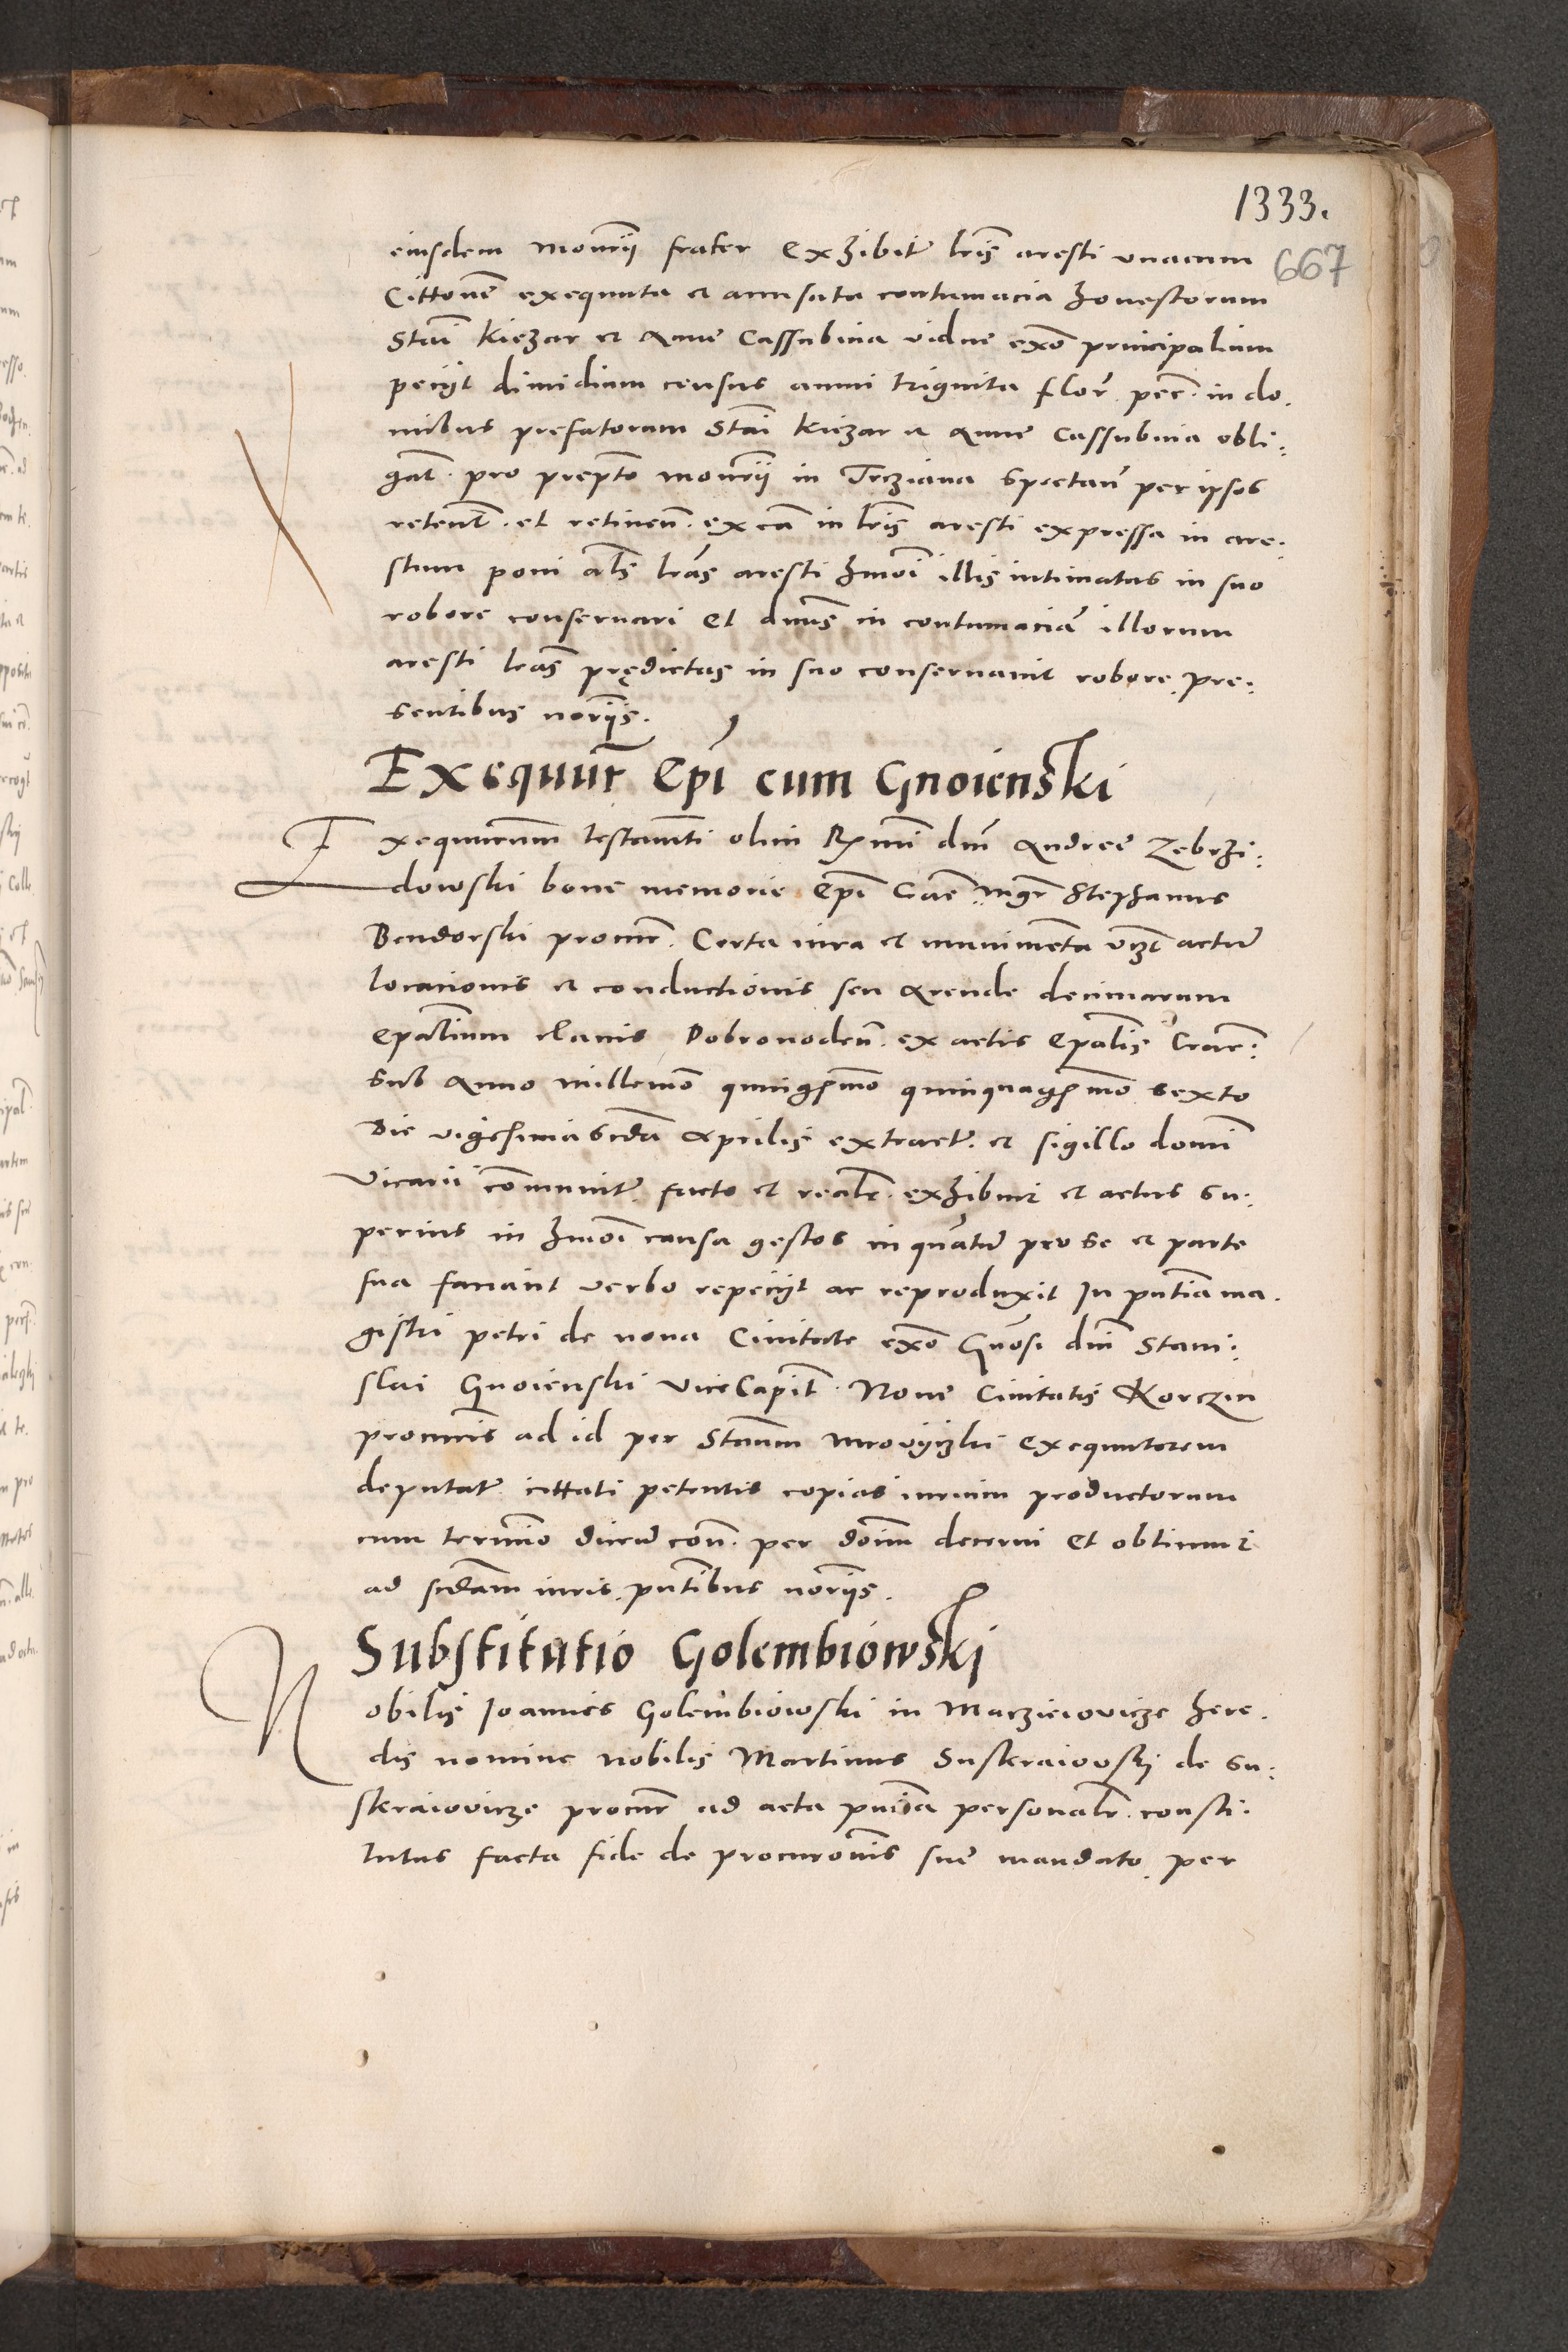 1333.
667
eiusdem monrii frater Exhibitis lris aresti unacum
Cittone exequuta et accusata contumacia honestorum
Stai Kiezar et Anne Cassubina vidue exo principalium
peciit dimidium census annui triginta flor. pec. in do.
mibus prefatorum Stai Kiezar et Anne Cassubina obli:
gat. pro prepto monrii in Trziana spectan per ipsos
retent. et retinen. ex ca in lris aresti expressa in are:
stum poni als lras aresti hmoi illis intimatas in suo
robore conservari Et dnus in contumaciam illorum
aresti lras prędictas in suo conservavit robore. pre:
sentibus noriis.
Exequut Epi cum Gnoienski
Exequutorum testamti olim Rmi dni Andree Zebrzi:
dowski bone memorie Epi Crac. Mgr Stephanus
Bendorski procur. Certa iura et munimenta vizt actum
locacionis et conductionis seu Arende decimarum
Epalium clavis Dobrovoden. ex actis Epalis Crac:
sub Anno millemo quingmo quinquagmo sexto
die vigesima scda Aprilis extract. et sigillo domini
Vicarii communit. facto et realr. exhibuit et actus su:
perius in hmoi causa gestos inquantum pro se et parte
sua faciunt verbo repeciit ac reproduxit In pntia ma.
gistri petri de nova Civitate exo Gnosi dni Stani:
slai Gnoienski viceCapit. Nove Civitatis Korczin
procuris ad id per Stanum Mrovyizki Exequutorem
deputat. cittati petentis copias iurium productorum
cum termino dicend con. per dominum decerni Et obtinuit
ad scdam iuris. pntibus noriis.
Substitutio Golembiowski
Nobilis Joannes Golembiowski in Marzieiovicze here.
dis nomine nobilis Martinus Suskraiowski de Su:
skraiovicze procur ad acta pntia personalr. consti.
tutus facta fide de procuronis sue mandato. per